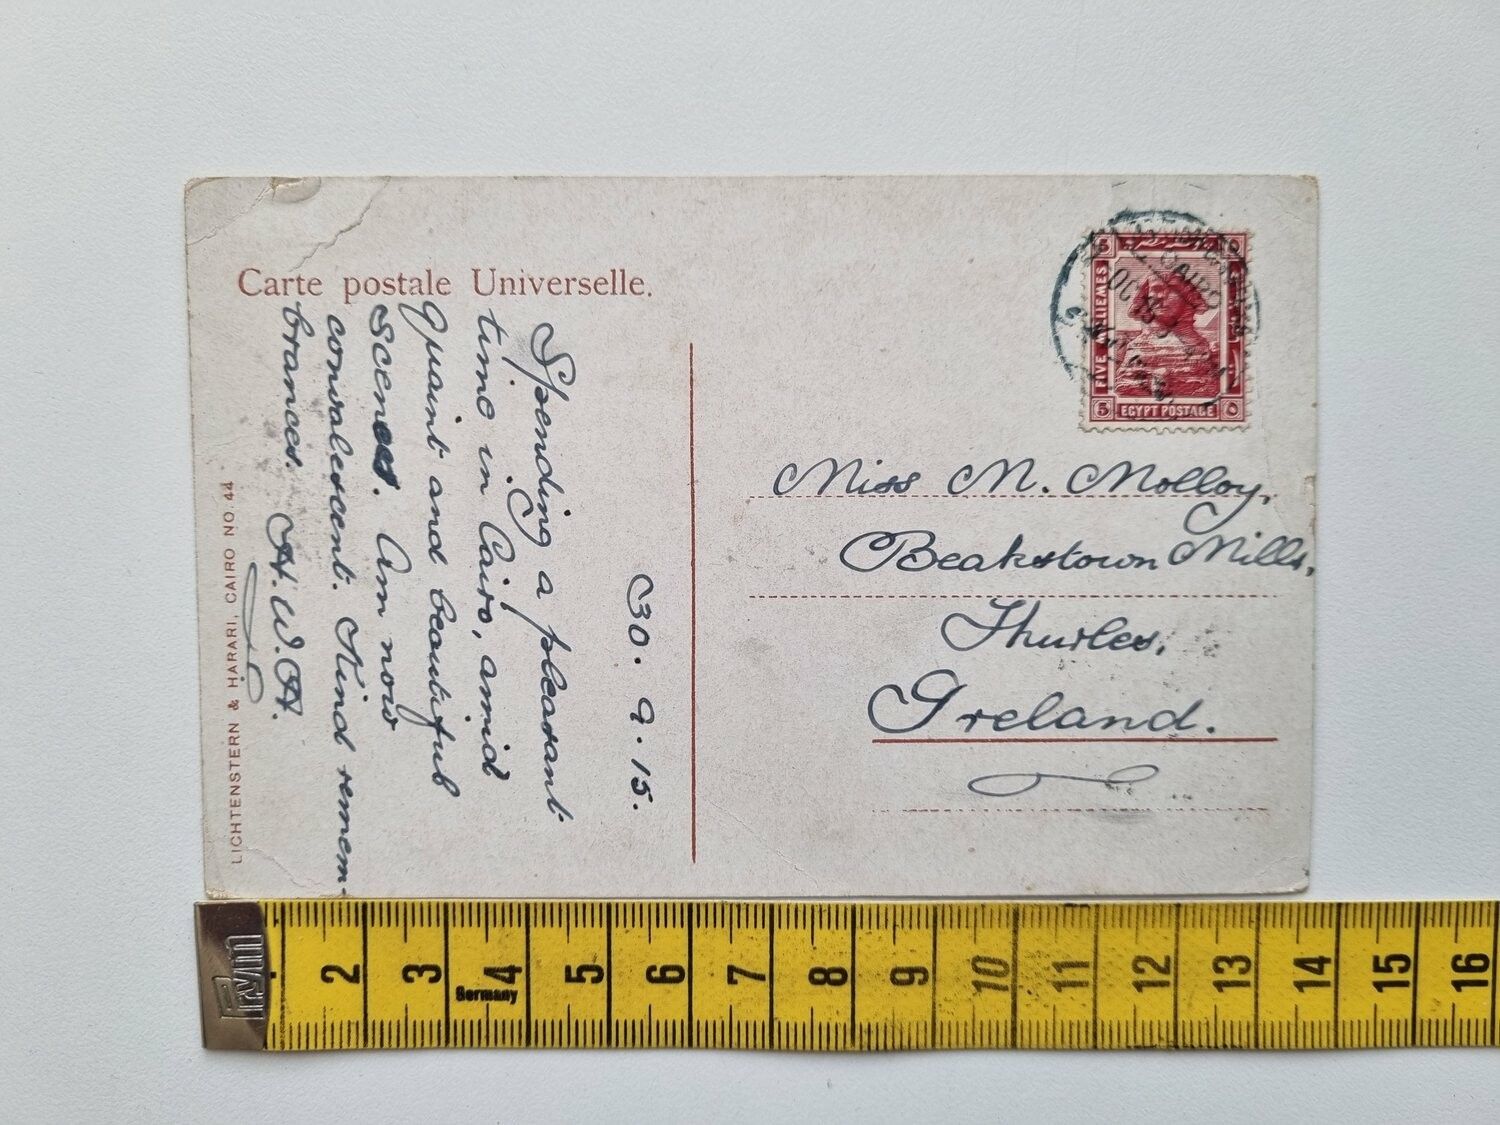 Carte postale Universelle.
30. 9. 15.
Spending a pleasant
time in Cairo, amid
quaint and beautiful
scenes. Am now
convalescent. Kind remem-
brances. A.W.A.
LICHTENSTERN & HARARI, CAIRO NO. 44
FIVE MILLIEMES
5
5
٥
EGYPT POSTAGE
CAIRO
OC
Miss M. Molloy,
Beakstown Mills,
Thurles,
Ireland.
Prym
2 3 4 5 6 7 8 9 10 11 12 13 14 15 16
Germany